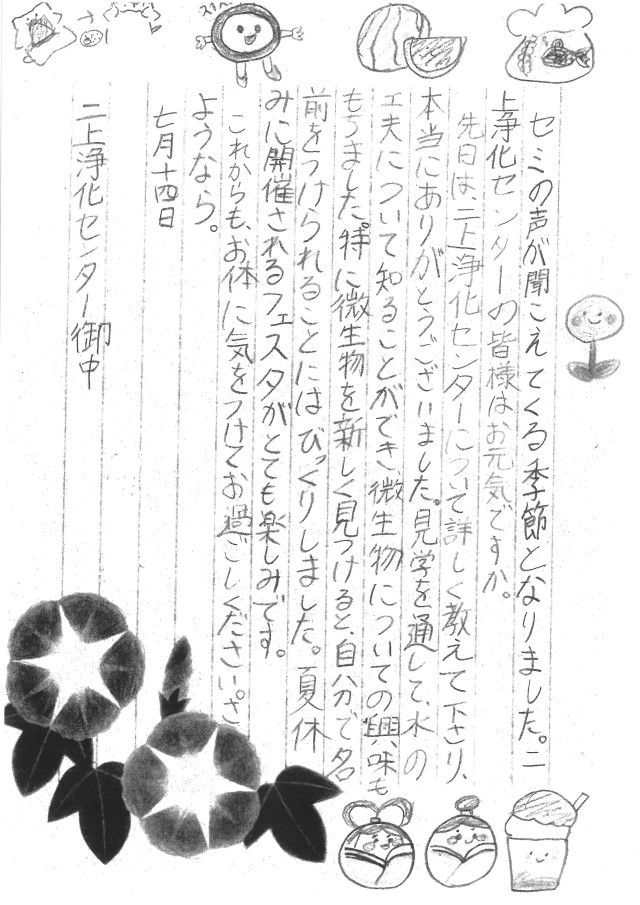 セミの声が聞こえてくる季節となりました。二
上浄化センターの皆様はお元気ですか。
先日は、二上浄化センターについて詳しく教えて下さり、
本当にありがとうございました。見学を通して、水の
工夫について知ることができ、微生物についての興味も
もちました。特に微生物を新しく見つけると、自分で名
前をつけられることにはびっくりしました。夏休
みに開催されるフェスタがとても楽しみです。
これからも、お体に気をつけてお過ごしください。さ
ようなら。
七月十四日
二上浄化センター御中